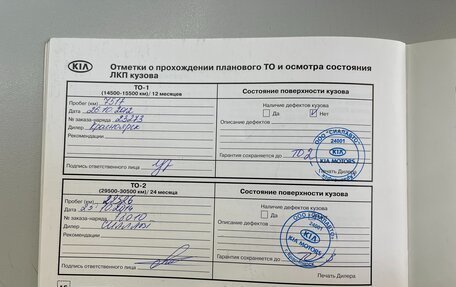 KIA
Отметки о прохождении планового ТО и осмотра состояния
ЛКП кузова
ТО-1
(14500-15500 км)/ 12 месяцев
Состояние поверхности кузова
Пробег (км) 7517
Дата
№ заказа-наряда 23273
Дилер Красноярск
Рекомендации
Подпись ответственного лица
Наличие дефектов кузова
Да
Нет
Описание дефектов
Гарантия сохраняется до ТО 2
ООО "СИАЛАВТО"
24001
KIA
KIA MOTORS
Печать Дилера
ТО-2
(29500-30500 км)/ 24 месяца
Состояние поверхности кузова
Пробег (км)
Дата
№ заказа-наряда
Дилер
Рекомендации
Подпись ответственного лица
Наличие дефектов кузова
Да
Описание дефектов
Гарантия сохраняется до
24001
KIA
KIA MOTORS
Печать Дилера